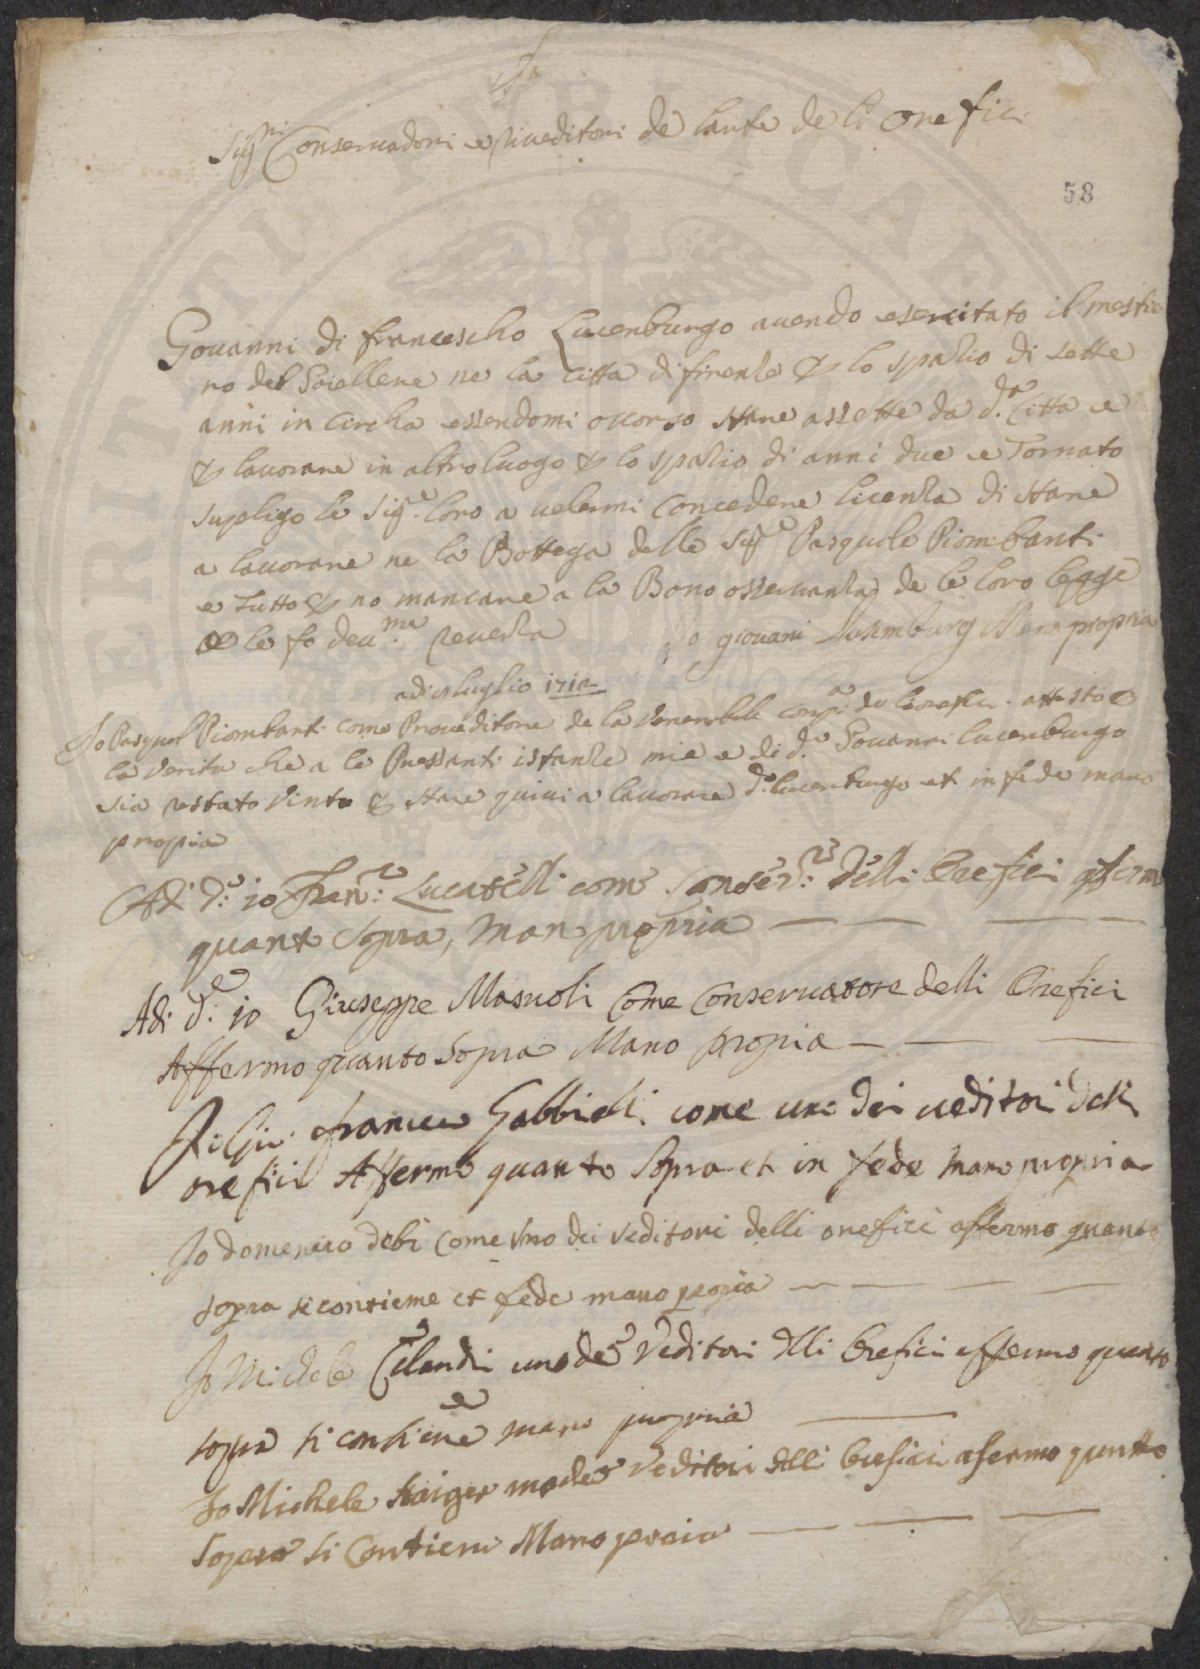 Sig.ri Conservadori e Riveditori de larte de li Orefici
58
Govanni di francescho Lucenburgo avendo esercitato il mestie
ro del Goiellere ne la citta di firenze & lo spazio di sette
anni in circha essendomi ocorso stare assette da d.a Citta e
& lavorare in altro luogo & lo spazio di anni due e Tornato
suplico le Sig.e loro a volermi concedere licenza di stare
a lavorare ne la Bottega delle Sig.e Pasquale Piombanti
e Tutto & no mancare a la Bono osservanza de le loro legge
e le fo deu.ma reverza Io giovani Lusemburg Mano propria
adi luglio 171
Io Pasqual Piombanti come Proveditore de la Venerabile comp.a de li orefici attesto
la Verita che a le Pressanti istanze mie e di d.o Govanni lucenburgo
sia restato Vinto & stare quivi a lavorare d.o lucenburgo et in fede mano
propria
Adi d.o io Fran.co Lucatelli come Conser.re delli Orefici afermo
quanto sopra, man propria
Adi d.o io Giuseppe Masuoli Come Conservatore delli Orefici
Affermo quanto Sopra Mano propia
Io Gio. francesco Gabbielli come uno dei veditori deli
orefici Affermo quanto Sopra et in fede mano propria
Io domenico debi come Uno dei Veditori delli orefici affermo quanto
sopra si contiene et fede mano propia
Io Michele Cilandri uno de Veditori delli Orefici affermo quanto
sopra si contiene mano propria
Io Michele Kaiger uno de Veditori delli Orefici afermo quntto
Sopra si Contiene Mano propia